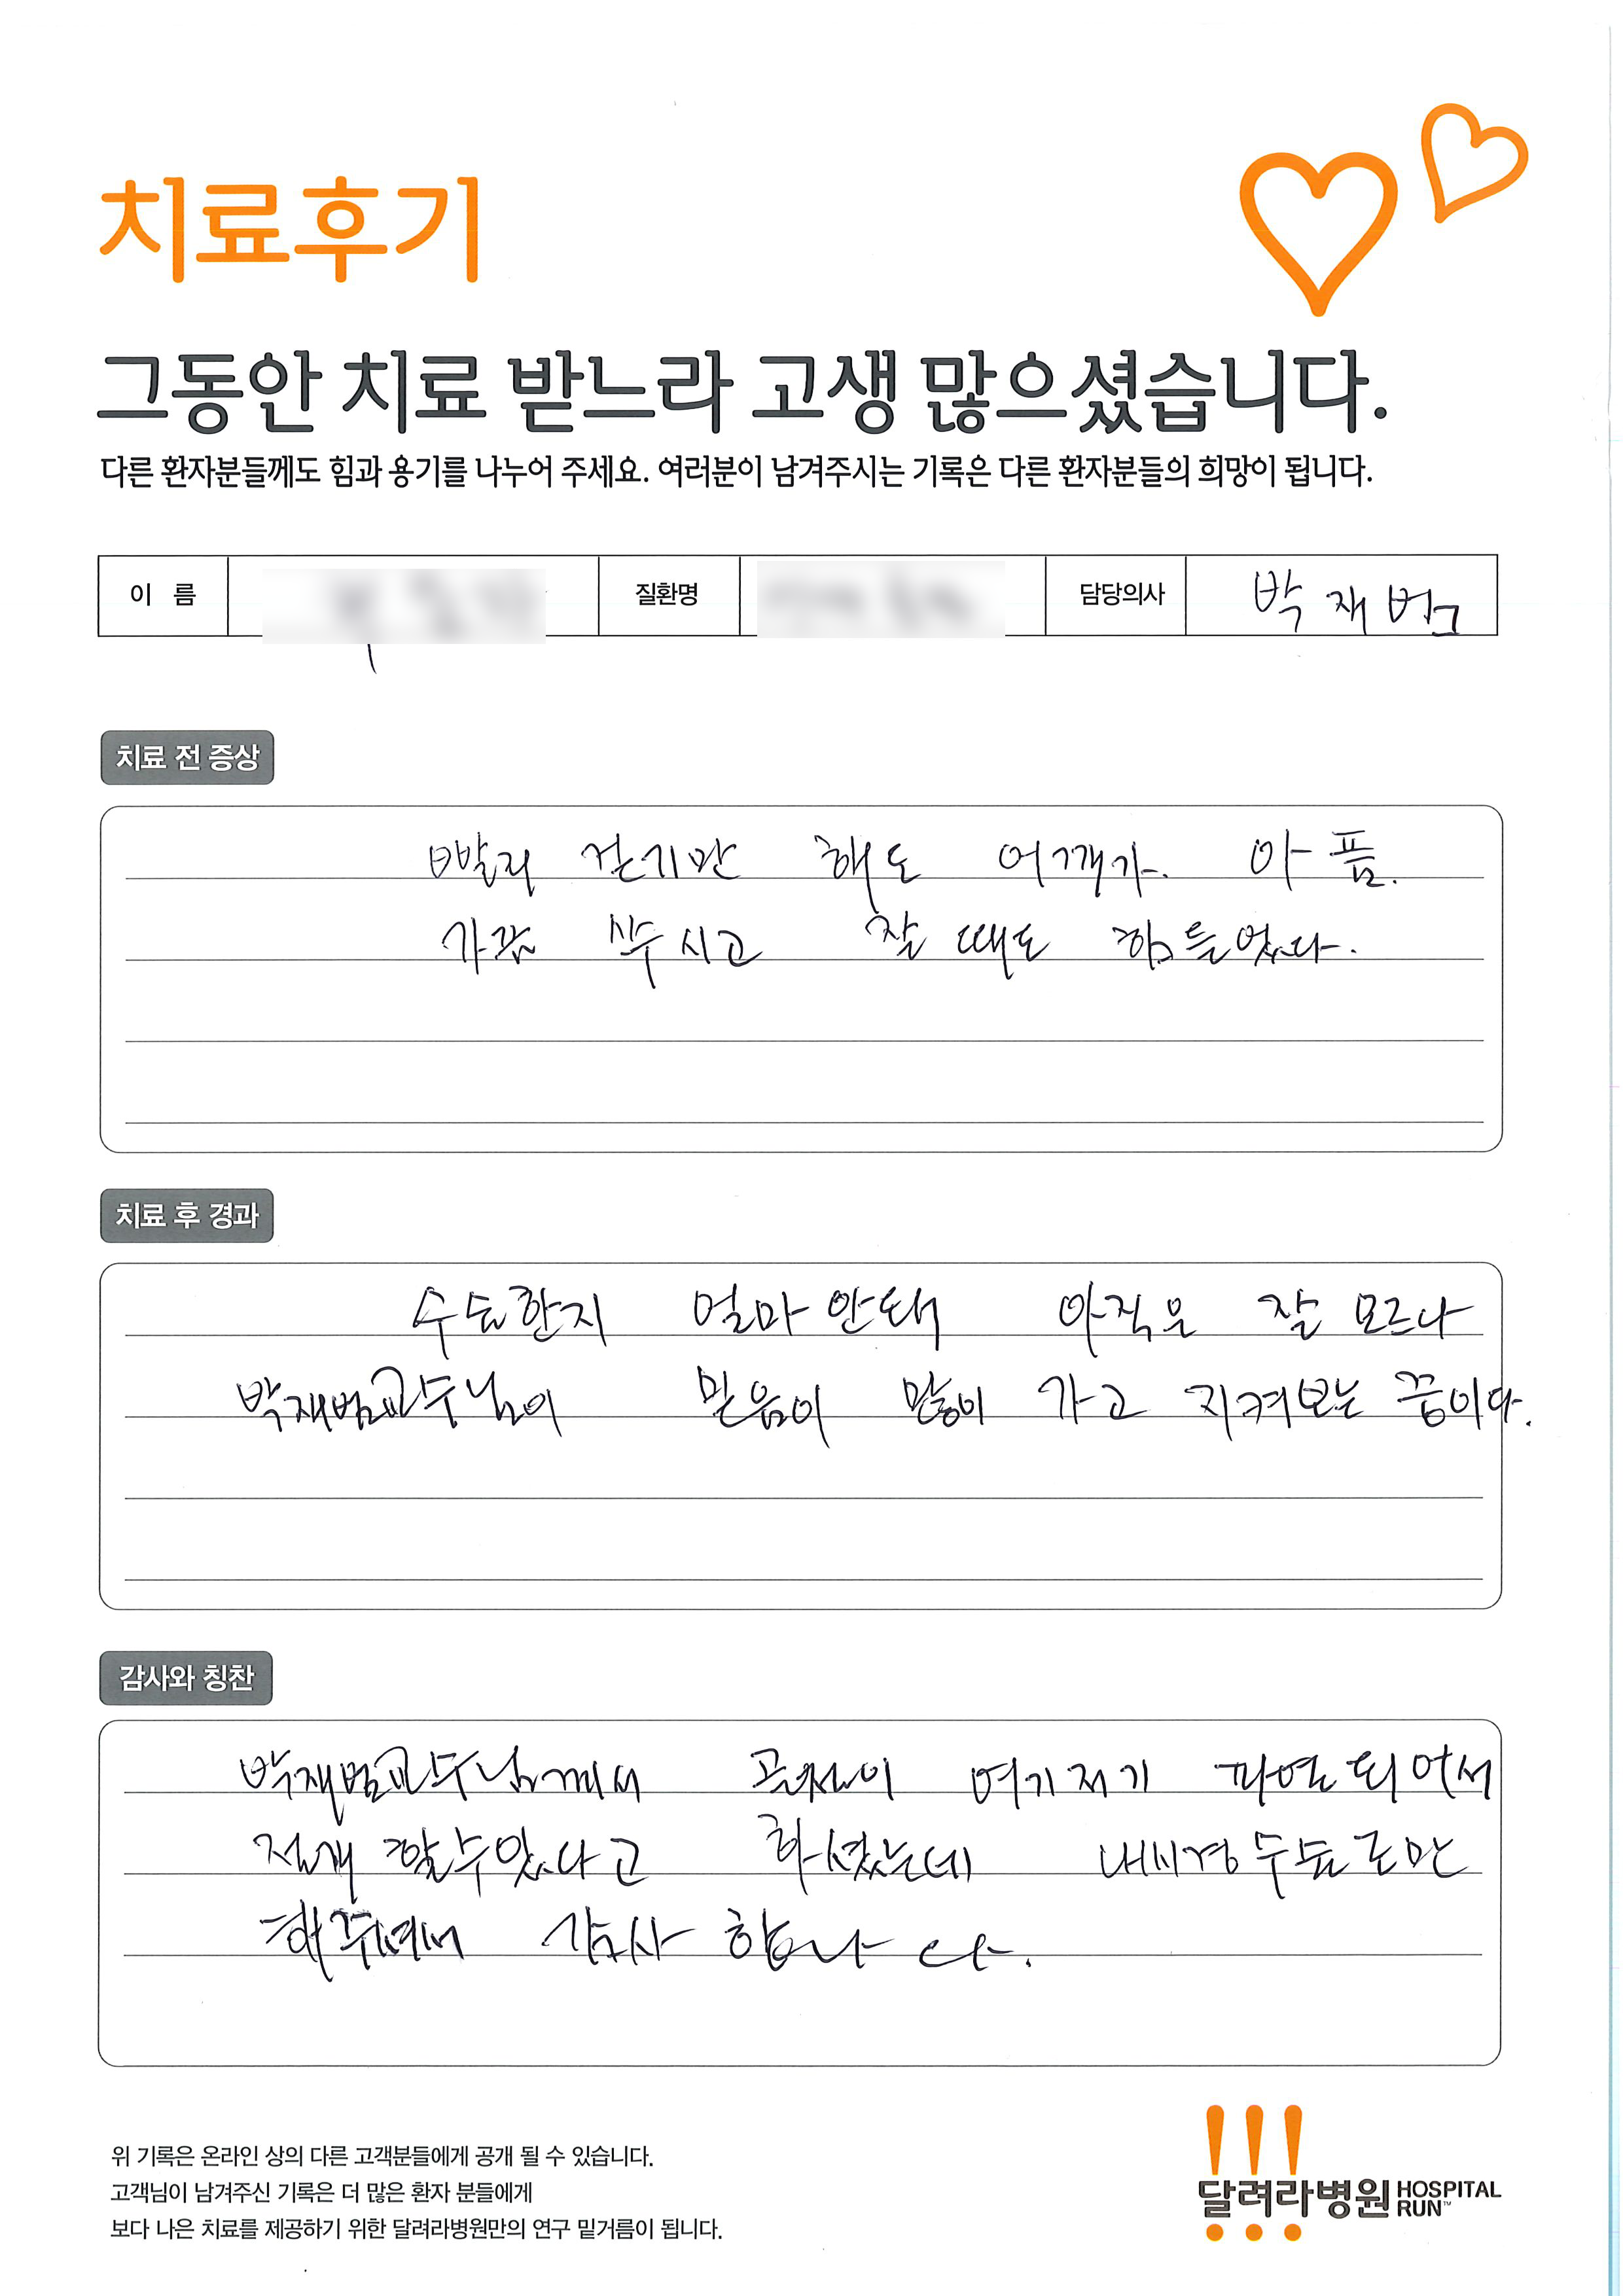 치료후기
그동안 치료 받느라 고생 많으셨습니다.
다른 환자분들께도 힘과 용기를 나누어 주세요. 여러분이 남겨주시는 기록은 다른 환자분들의 희망이 됩니다.
이 름 질환명 담당의사 박재범
치료 전 증상
빨리 걷기만 해도 어깨가 아픔.
가끔 쑤시고 잘 때도 힘들었다.
치료 후 경과
수술한지 얼마안돼 아직은 잘 모르나
박재범교수님이 믿음이 많이 가고 지켜보는 끔이다.
감사와 칭찬
박재범교수님께서 여기저기 파열되어서
절개 할수있다고 하셨는데 내시경수술로만
해주셔서 감사 합니다.
위 기록은 온라인 상의 다른 고객분들에게 공개 될 수 있습니다.
고객님이 남겨주신 기록은 더 많은 환자 분들에게
보다 나은 치료를 제공하기 위한 달려라병원만의 연구 밑거름이 됩니다.
달려라병원 HOSPITAL RUN™